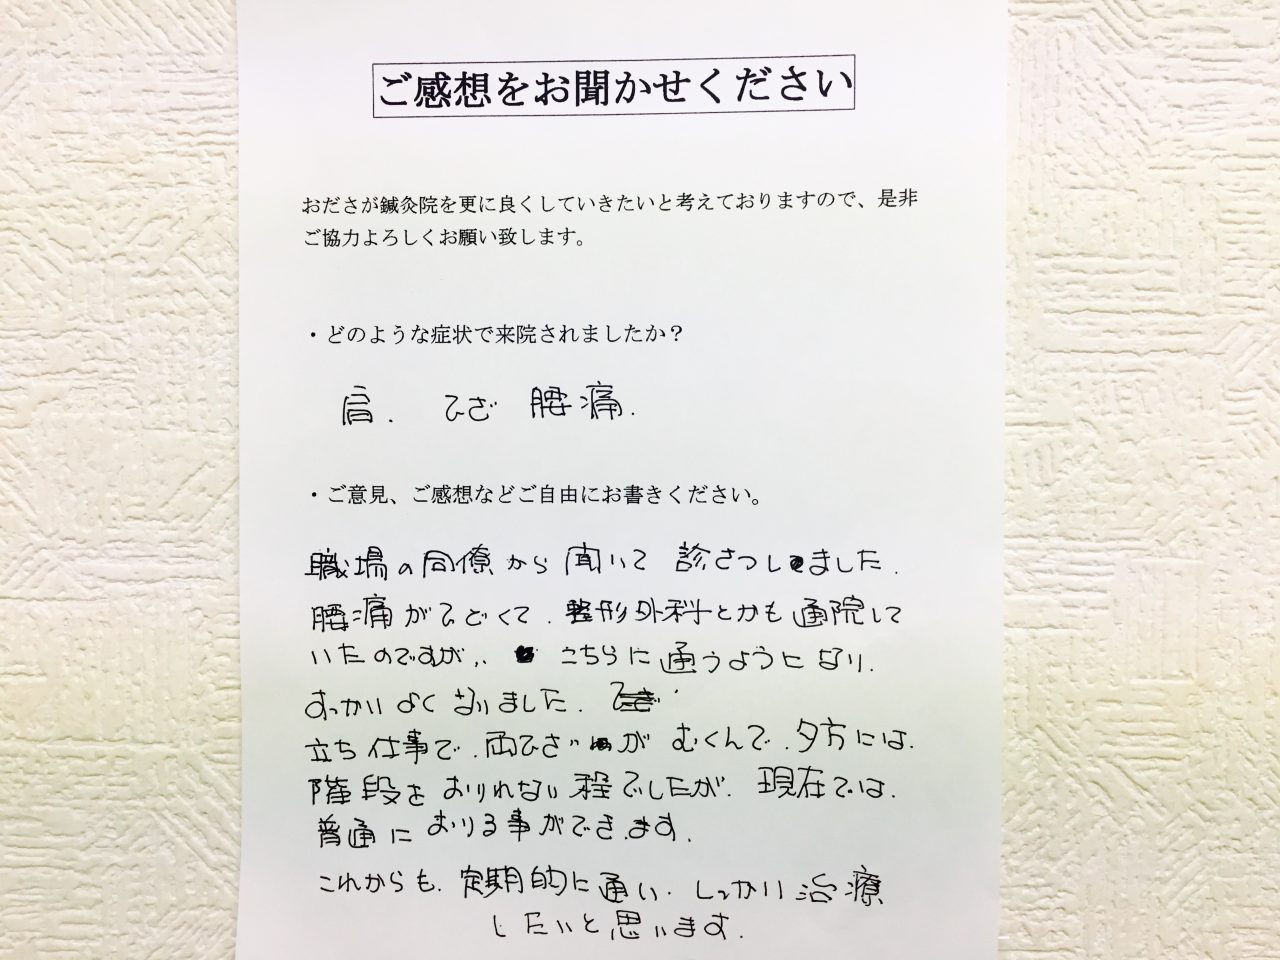 ご感想をお聞かせください
おださが鍼灸院を更に良くしていきたいと考えておりますので、是非
ご協力よろしくお願い致します。
・どのような症状で来院されましたか?
肩. ひざ 腰痛.
・ご意見、ご感想などご自由にお書きください。
職場の同僚から聞いて 診さつしてました.
腰痛がひどくて. 整形外科とかも通院して
いたのですが、. こちらに通うようになり.
すっかりよくなりました.
立ち仕事で. 両ひざが むくんで. 夕方には.
階段をおりれない程でしたが. 現在では.
普通におりる事ができます.
これからも. 定期的に通い. しっかり治療
したいと思います.